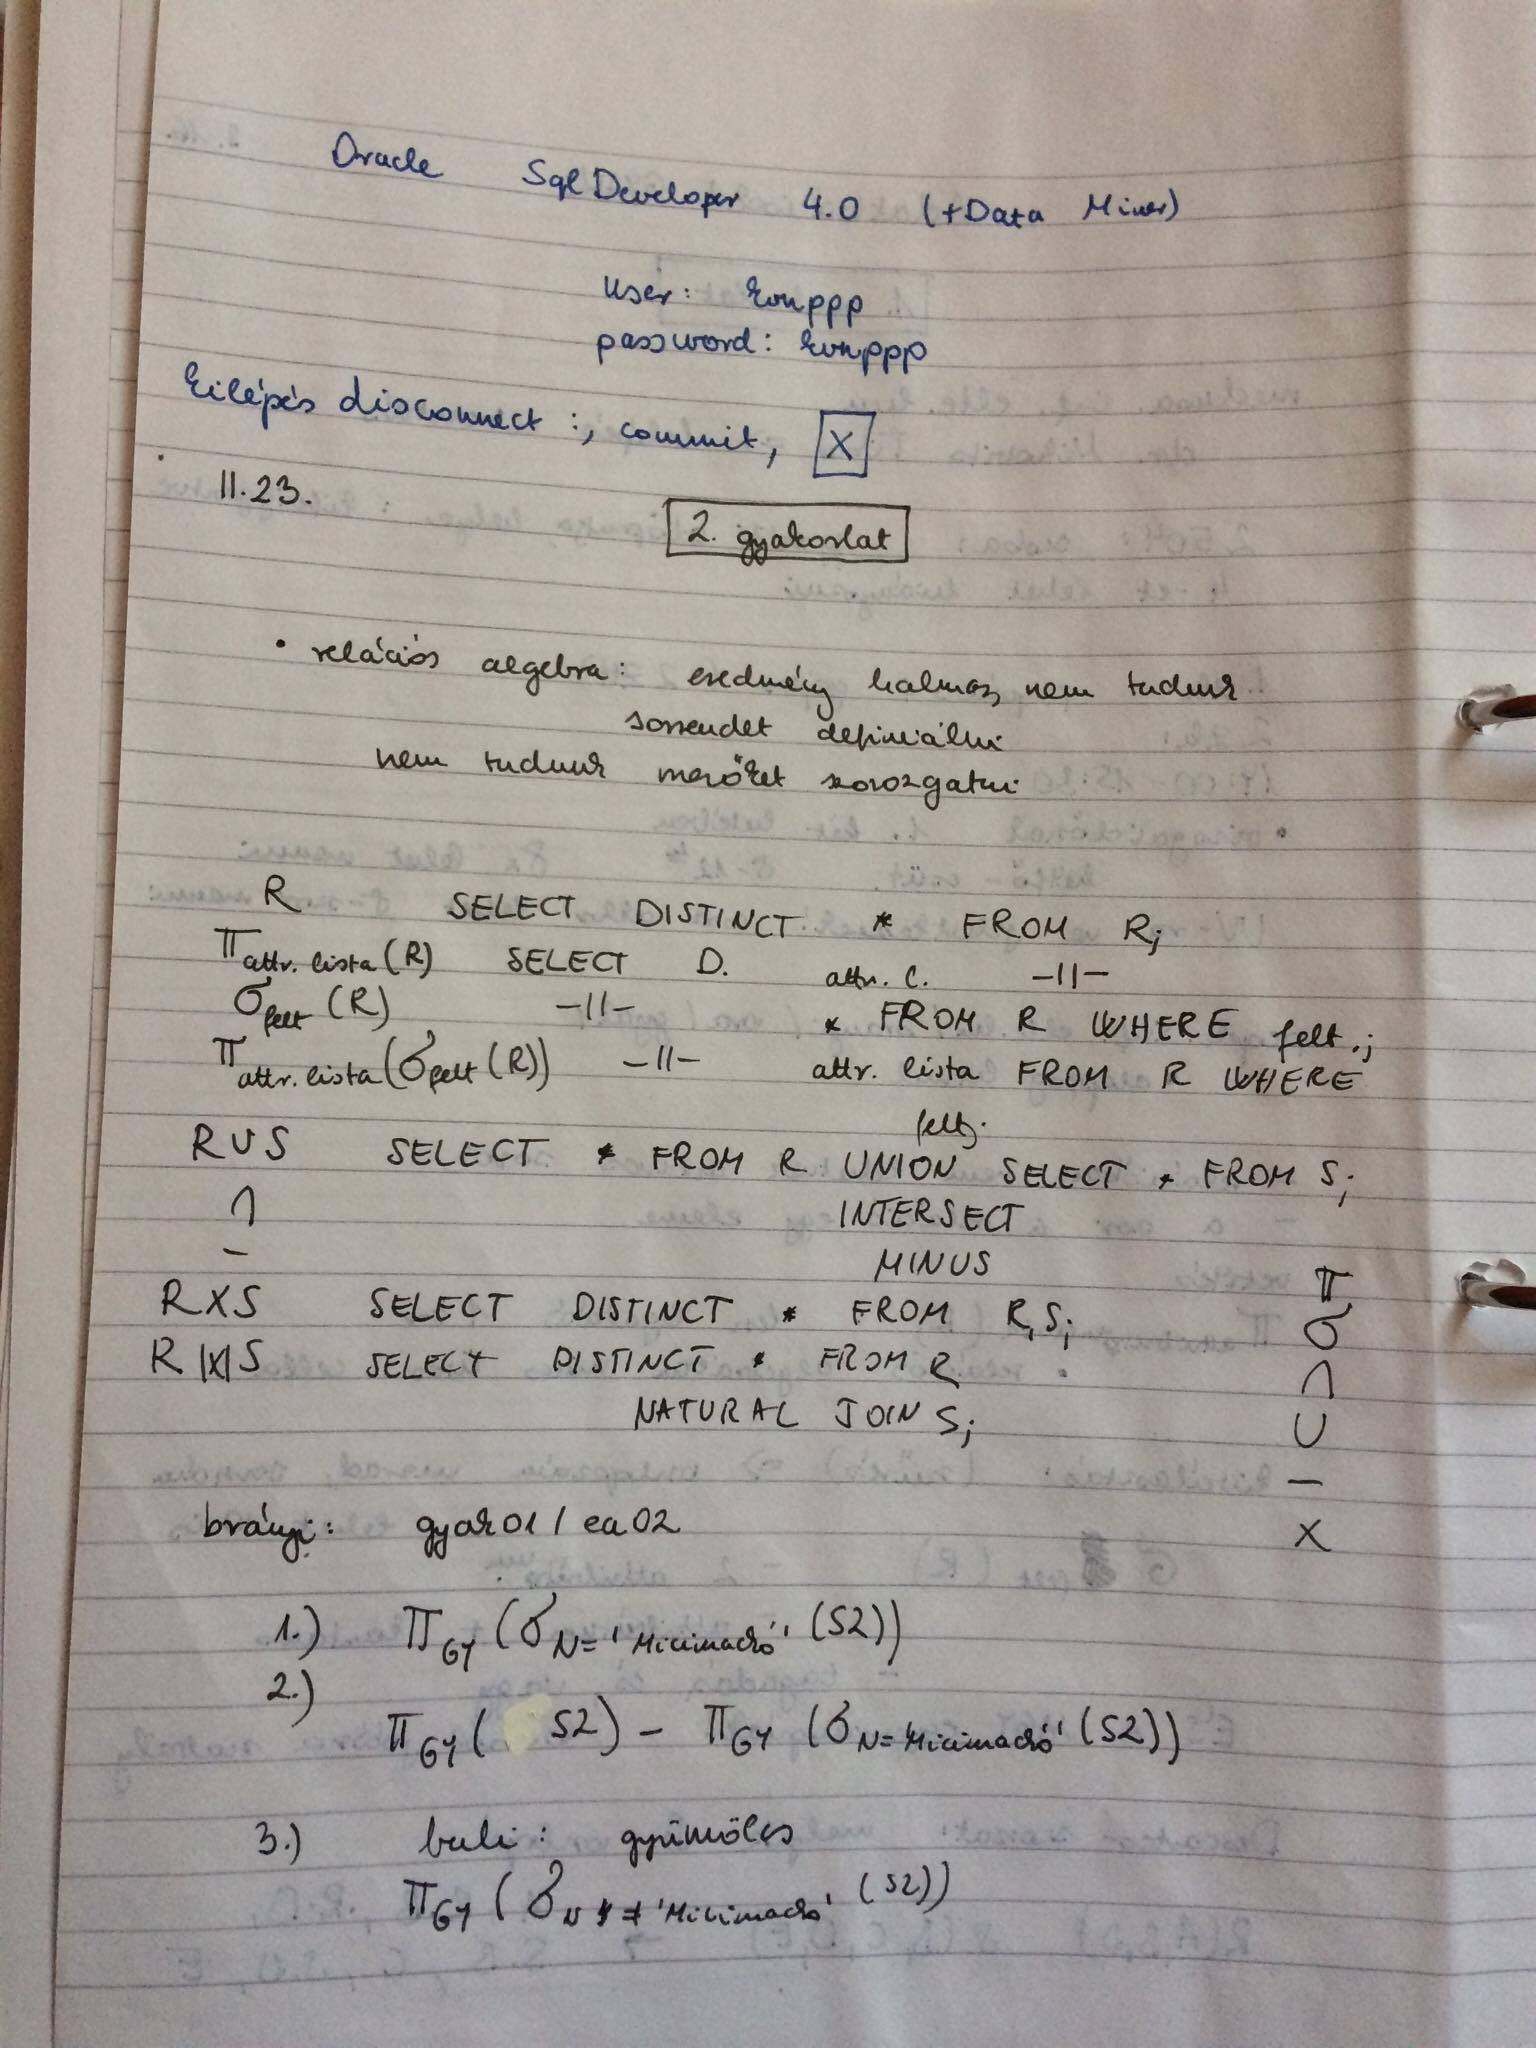 Oracle SqlDeveloper 4.0 (+Data Miner)
user: konppp
password: konppp
kilépés disconnect :, commit, X
II.23.
2. gyakorlat
• relációs algebra: eredmény halmaz, nem tudunk
sorrendet definiálni
nem tudunk mezőket szorozgatni
R SELECT DISTINCT * FROM R;
π attr. lista (R) SELECT D. attr. l. -||-
σ felt (R) -||- * FROM R WHERE felt.;
π attr. lista (σ felt (R)) -||- attr. lista FROM R WHERE
felt;.
R ∪ S SELECT * FROM R UNION SELECT * FROM S;
∩ INTERSECT
- MINUS
π
R X S SELECT DISTINCT * FROM R,S;
σ
R |X| S SELECT DISTINCT * FROM R
∩
NATURAL JOIN S;
∪
—
brányi: gyak01 / ea02
X
1.) π GY (σ N = 'Micimackó' (S2))
2.)
π GY ( S2) - π GY (σ N = 'Micimackó' (S2))
3.) buli: gyümölcs
π GY (σ N ≠ 'Micimackó' (S2))